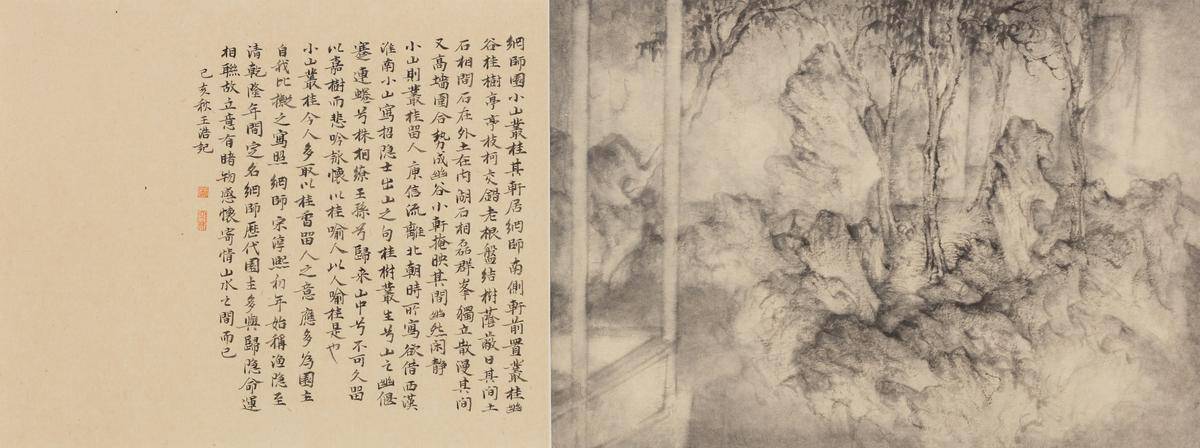 網師園小山叢桂其軒居網師南側軒前置叢桂幽
谷桂樹亭亭枝柯交錯老根盤結樹蔭蔽日其间土
石相間石在外土在内湖石相磊群峯獨立散漫其间
又高墙圍合勢成幽谷小軒掩映其間幽然闲靜
小山則叢桂留人庾信流離北朝時所寫欲借西漢
淮南小山寫招隐士出山之句桂樹叢生兮山之幽偃
蹇連蜷兮株相繚王孫兮歸来山中兮不可久留
以嘉樹而悲吟詠懷以桂喻人以人喻桂是也
小山叢桂今人多取以桂香留人之意應多為園主
自我比擬之寫照網師宋淳熙初年始稱渔隐至
清乾隆年間定名網師歷代園主多與歸隐命運
相聯故立意有睹物感懷寄情山水之間而已
己亥秋王浩記